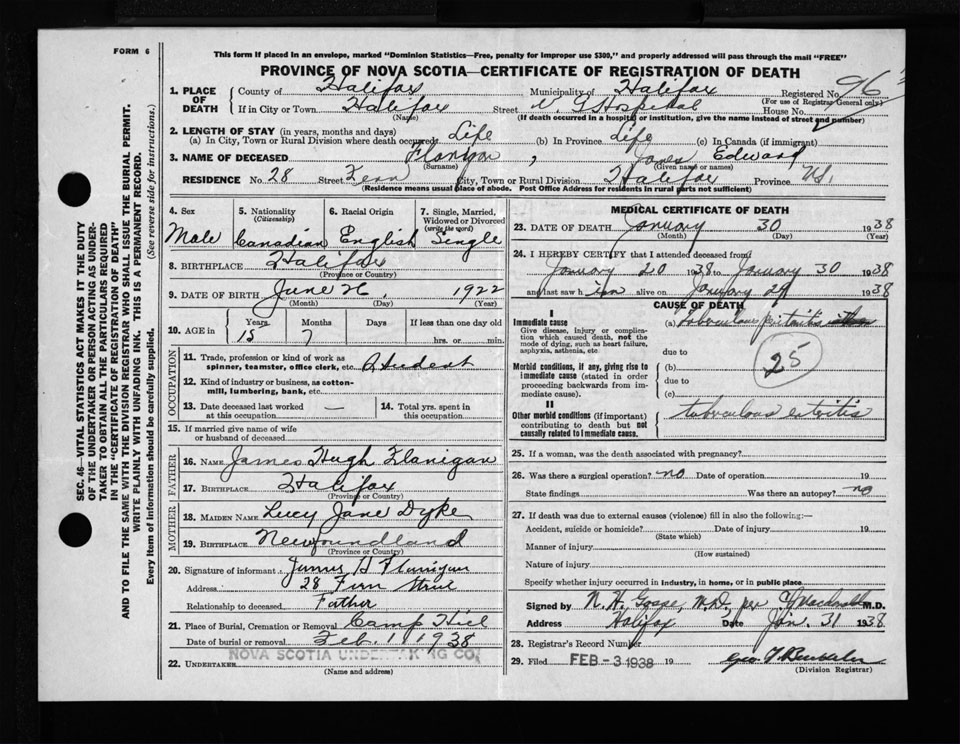 FORM 6
This form if placed in an envelope, marked "Dominion Statistics—Free, penalty for improper use $300," and properly addressed will pass through the mail "FREE"
PROVINCE OF NOVA SCOTIA—CERTIFICATE OF REGISTRATION OF DEATH
1. PLACE OF DEATH County of Halifax Municipality of Halifax Registered No. 96
(For use of Registrar General only)
If in City or Town Halifax Street V. G Hospital House No.
(Name) (If death occurred in a hospital or institution, give the name instead of street and number)
2. LENGTH OF STAY (in years, months and days)
(a) In City, Town or Rural Division where death occurred Life (b) In Province Life (c) In Canada (if immigrant)
3. NAME OF DECEASED Flanigan , James Edward
(Surname) (Given name or names)
RESIDENCE No. 28 Street Fern City, Town or Rural Division Halifax Province N.S.
(Residence means usual place of abode. Post Office Address for residents in rural parts not sufficient)
4. Sex Male
5. Nationality (Citizenship) Canadian
6. Racial Origin English
7. Single, Married, Widowed or Divorced (write the word) Single
8. BIRTHPLACE Halifax
(Province or Country)
9. DATE OF BIRTH June 26, 1922
(Month) (Day) (Year)
10. AGE in Years 15 Months 7 Days If less than one day old hrs. or min.
OCCUPATION
11. Trade, profession or kind of work as spinner, teamster, office clerk, etc. Student
12. Kind of industry or business, as cotton-mill, lumbering, bank, etc.
13. Date deceased last worked at this occupation —
14. Total yrs. spent in this occupation.
15. If married give name of wife or husband of deceased
FATHER
16. NAME James Hugh Flanigan
17. BIRTHPLACE Halifax
(Province or Country)
MOTHER
18. MAIDEN NAME Lucy Jane Dyke
19. BIRTHPLACE Newfoundland
(Province or Country)
20. Signature of informant James H Flanigan
Address 28 Fern Street
Relationship to deceased Father
21. Place of Burial, Cremation or Removal Camp Hill
Date of burial or removal Feb. 1, 1938
22. UNDERTAKER NOVA SCOTIA UNDERTAKING CO.
(Name and Address)
MEDICAL CERTIFICATE OF DEATH
23. DATE OF DEATH January 30 1938
(Month) (Day) (Year)
24. I HEREBY CERTIFY that I attended deceased from
January 20 1938 to January 30 1938
and last saw him alive on January 29 1938
CAUSE OF DEATH
I
Immediate cause
Give disease, injury or complication which caused death, not the mode of dying, such as heart failure, asphyxia, asthenia, etc
(a) tuberculous
due to
Morbid conditions, if any, giving rise to immediate cause (stated in order proceeding backwards from immediate cause)
(b)
due to
(c)
25
II
Other morbid conditions (if important) contributing to death but not causally related to immediate cause.
tuberculous enteritis
25. If a woman, was the death associated with pregnancy?
26. Was there a surgical operation? no Date of operation 19
State findings Was there an autopsy? no
27. If death was due to external causes (violence) fill in also the following:—
Accident, suicide or homicide? Date of injury 19
(State which)
Manner of injury
(How sustained)
Nature of injury
Specify whether injury occurred in industry, in home, or in public place.
Signed by N. H. Gosse, M.D. per M.D.
Address Halifax Date Jan. 31 1938
28. Registrar's Record Number
29. Filed FEB - 3 1938 19
(Division Registrar)
SEC. 46—VITAL STATISTICS ACT MAKES IT THE DUTY
OF THE UNDERTAKER OR PERSON ACTING AS UNDERTAKER TO OBTAIN ALL THE PARTICULARS REQUIRED
IN THE "CERTIFICATE OF REGISTRATION OF DEATH"
AND TO FILE THE SAME WITH THE DIVISION REGISTRAR WHO SHALL ISSUE THE BURIAL PERMIT.
WRITE PLAINLY WITH UNFADING INK. THIS IS A PERMANENT RECORD.
Every item of information should be carefully supplied. (See reverse side for instructions.)